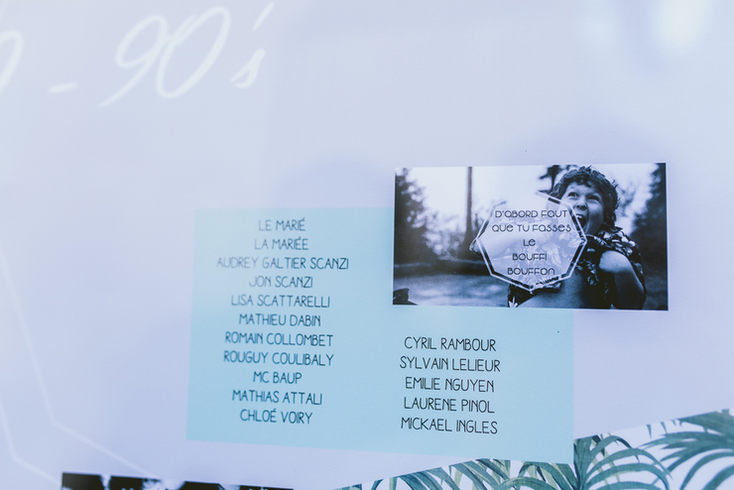 - 90's
D'ABORD FAUT
QUE TU FASSES
LE
BOUFFI
BOUFFON
LE MARIÉ
LA MARIÉE
AUDREY GALTIER SCANZI
JON SCANZI
LISA SCATTARELLI
MATHIEU DABIN
ROMAIN COLLOMBET
ROUGUY COULIBALY
MC BAUP
MATHIAS ATTALI
CHLOÉ VOIRY
CYRIL RAMBOUR
SYLVAIN LELIEUR
EMILIE NGUYEN
LAURENE PINOL
MICKAEL INGLES